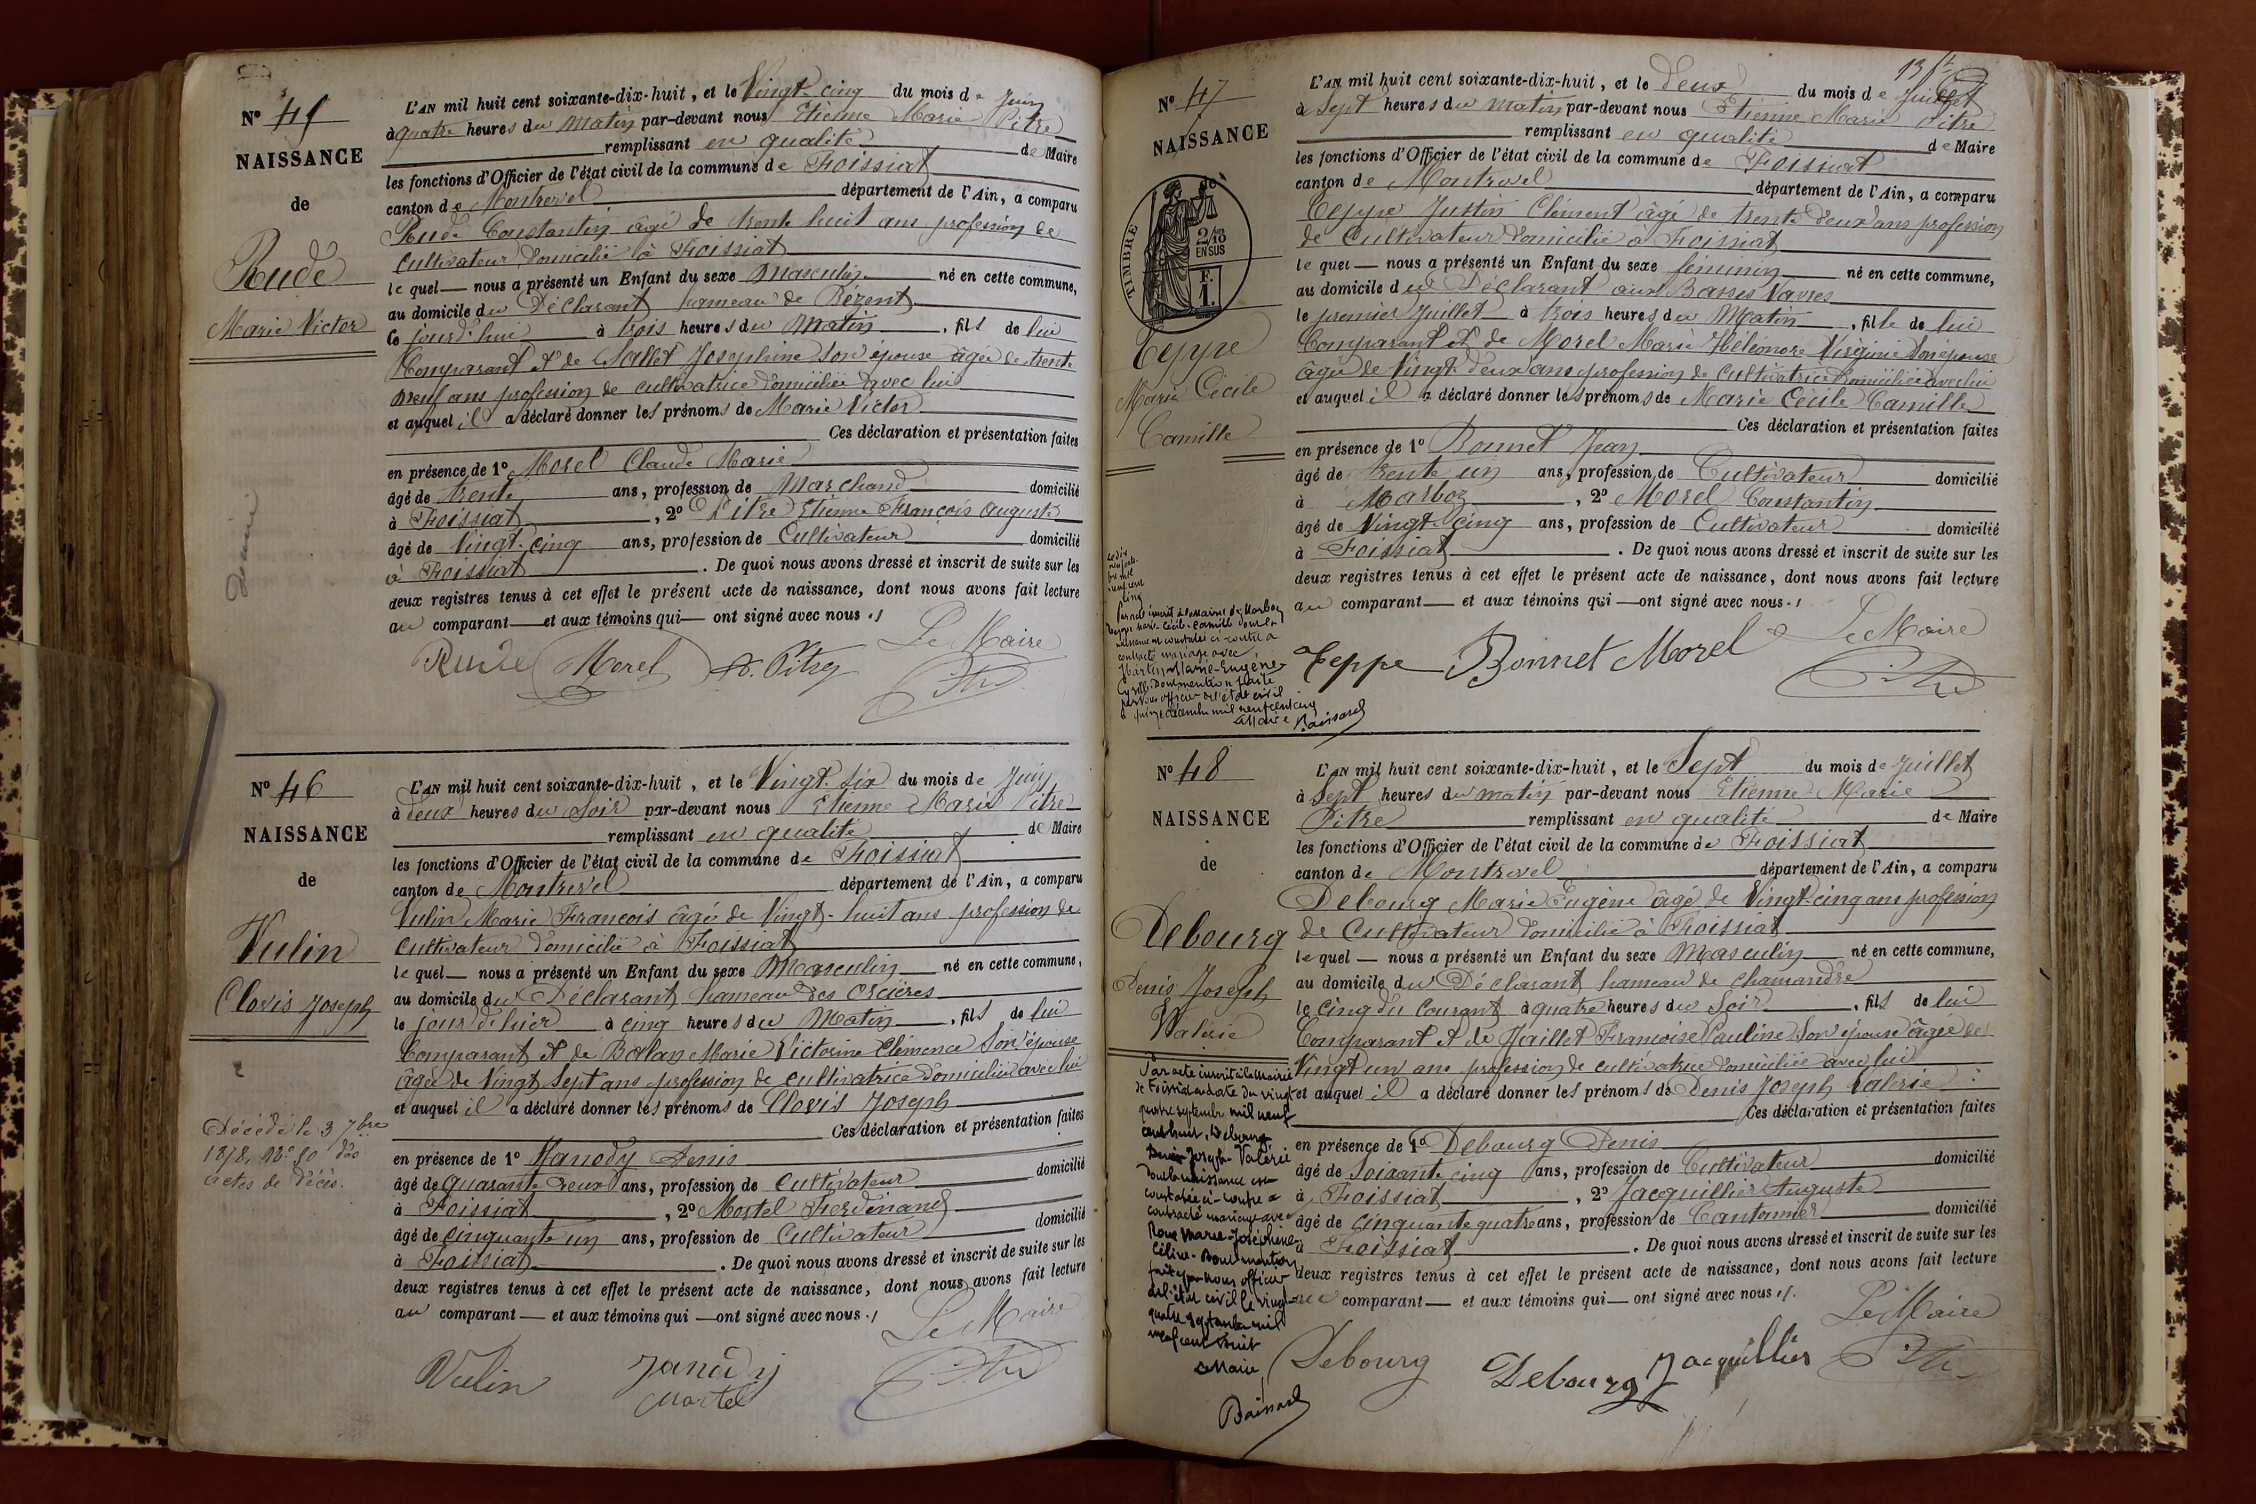 N° 45
NAISSANCE
de
Rude
Marie Victor
L'AN mil huit cent soixante-dix-huit, et le Vingt cinq du mois de Juin
à quatre heures du matin par-devant nous Etienne Marie Pitre
remplissant en qualité de Maire
les fonctions d'Officier de l'état civil de la commune de Foissiat
canton de Montrevel département de l'Ain, a comparu
Rude Constantin âgé de trente huit ans profession de
cultivateur domicilié à Foissiat
lequel nous a présenté un Enfant du sexe Masculin né en cette commune,
au domicile du Déclarant hameau de
Ce jourd'hui à trois heures du Matin, fils de lui
Comparant et de Sallet Josephine son épouse âgée de trente
neuf ans profession de cultivatrice domiciliée avec lui
et auquel il a déclaré donner les prénoms de Marie Victor
Ces déclaration et présentation faites
en présence de 1° Morel Claude Marie
âgé de trente ans, profession de Marchand domicilié
à Foissiat, 2° Pitre Etienne François Auguste
âgé de Vingt-cinq ans, profession de Cultivateur domicilié
à Foissiat. De quoi nous avons dressé et inscrit de suite sur les
deux registres tenus à cet effet le présent acte de naissance, dont nous avons fait lecture
au comparant et aux témoins qui ont signé avec nous
Le Maire
Rude Morel A. Pitre Pitre
N° 46
NAISSANCE
de
Vulin
Clovis Joseph
Décédé le 3 7bre
1878, N° 50 des
actes de décès.
L'AN mil huit cent soixante-dix-huit, et le Vingt six du mois de Juin
à deux heures du soir par-devant nous Etienne Marie Pitre
remplissant en qualité de Maire
les fonctions d'Officier de l'état civil de la commune de Foissiat
canton de Montrevel département de l'Ain, a comparu
Vulin Marie François âgé de Vingt-huit ans profession de
cultivateur domicilié à Foissiat
lequel nous a présenté un Enfant du sexe Masculin né en cette commune,
au domicile du Déclarant hameau des Orcières
le jour d'hier à cinq heures du Matin, fils de lui
Comparant et de Balan Marie Victorine Clémence son épouse
âgée de Vingt sept ans profession de cultivatrice domiciliée avec lui
et auquel il a déclaré donner les prénoms de Clovis Joseph
Ces déclaration et présentation faites
en présence de 1° Janody Denis
âgé de quarante deux ans, profession de Cultivateur domicilié
à Foissiat, 2° Martel Ferdinand
âgé de cinquante un ans, profession de Cultivateur domicilié
à Foissiat. De quoi nous avons dressé et inscrit de suite sur les
deux registres tenus à cet effet le présent acte de naissance, dont nous avons fait lecture
au comparant et aux témoins qui ont signé avec nous
Le Maire
Vulin Janody Pitre
Martel
N° 47
NAISSANCE
de
TIMBRE
2/10
EN SUS
F.
1.
Teppe
Marie Cécile
Camille
Par acte inscrit à la mairie de Marboz
Teppe Marie-Cécile-Camille dont la
naissance est constatée ci-contre a
contracté mariage avec
Marie-Eugène
Cyrille. Dont mention faite
par nous officier de l'état civil
le quinze décembre mil neuf cent cinq
Le Maire
L'AN mil huit cent soixante-dix-huit, et le deux du mois de Juillet
à Sept heures du matin par-devant nous Etienne Marie Pitre
remplissant en qualité de Maire
les fonctions d'Officier de l'état civil de la commune de Foissiat
canton de Montrevel département de l'Ain, a comparu
Teppe Justin Clément âgé de trente deux ans profession
de Cultivateur domicilié à Foissiat
lequel nous a présenté un Enfant du sexe féminin né en cette commune,
au domicile du Déclarant aux Basses Vavres
le premier Juillet à trois heures du Matin, fille de lui
Comparant et de Morel Marie Héléonore Virginie son épouse
âgée de Vingt deux ans profession de cultivatrice domiciliée avec lui
et auquel il a déclaré donner les prénoms de Marie Cécile Camille
Ces déclaration et présentation faites
en présence de 1° Bonnet Jean
âgé de trente un ans, profession de Cultivateur domicilié
à Marboz, 2° Morel Constantin
âgé de Vingt-cinq ans, profession de Cultivateur domicilié
à Foissiat. De quoi nous avons dressé et inscrit de suite sur les
deux registres tenus à cet effet le présent acte de naissance, dont nous avons fait lecture
au comparant et aux témoins qui ont signé avec nous
Le Maire
Teppe Bonnet Morel Pitre
N° 48
NAISSANCE
de
Debourg
Denis Joseph
Valérie
Par acte inscrit à la Mairie
de Foissiat en date du vingt
quatre septembre mil neuf
cent huit, Debourg
Denis Joseph Valérie
dont la naissance est
constatée ci-contre a
contracté mariage avec
Roux Marie-Joséphine
Céline. Dont mention
faite par nous officier
de l'état civil le vingt
quatre septembre mil
neuf cent huit
Le Maire
L'AN mil huit cent soixante-dix-huit, et le Sept du mois de Juillet
à Sept heures du matin par-devant nous Etienne Marie
Pitre remplissant en qualité de Maire
les fonctions d'Officier de l'état civil de la commune de Foissiat
canton de Montrevel département de l'Ain, a comparu
Debourg Marie Eugène âgé de Vingt-cinq ans profession
de Cultivateur domicilié à Foissiat
lequel nous a présenté un Enfant du sexe Masculin né en cette commune,
au domicile du Déclarant hameau de Chamandre
le cinq du courant à quatre heures du Soir, fils de lui
Comparant et de Jaillet Françoise Pauline son épouse âgée de
Vingt un ans profession de cultivatrice domiciliée avec lui
et auquel il a déclaré donner les prénoms de Denis Joseph Valérie
Ces déclaration et présentation faites
en présence de 1° Debourg Denis
âgé de soixante cinq ans, profession de Cultivateur domicilié
à Foissiat, 2° Jacquillier Auguste
âgé de cinquante quatre ans, profession de Cantonnier domicilié
à Foissiat. De quoi nous avons dressé et inscrit de suite sur les
deux registres tenus à cet effet le présent acte de naissance, dont nous avons fait lecture
au comparant et aux témoins qui ont signé avec nous
Le Maire
Debourg Debourg Jacquillier Pitre